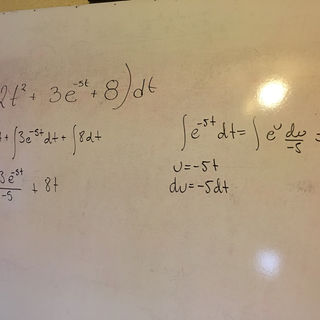 2t² + 3e^-5t + 8)dt
+ ∫3e^-5t dt + ∫8dt
3e^-5t/-5 + 8t
∫e^-5t dt = ∫e^u du/-5 =
u = -5t
du = -5dt